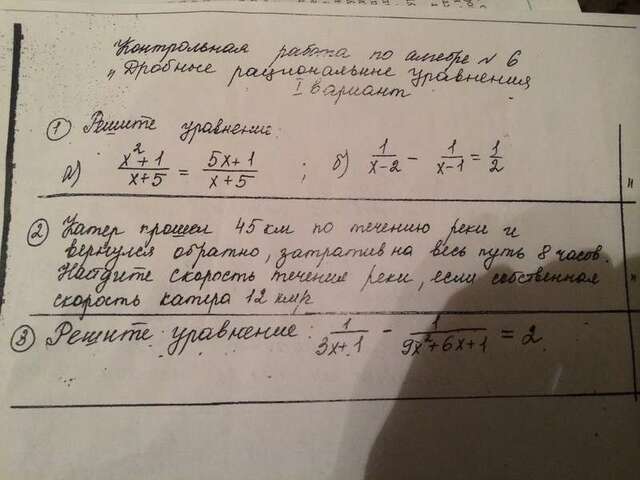 Контрольная работа по алгебре N 6
„Дробные рациональные уравнения
I вариант
① Решите уравнение:
а) (x²+1)/(x+5) = (5x+1)/(x+5) ; б) 1/(x-2) - 1/(x-1) = 1/2
② Катер прошел 45 км по течению реки и
вернулся обратно, затратив на весь путь 8 часов.
Найдите скорость течения реки, если собственная
скорость катера 12 км/ч
③ Решите уравнение: 1/(3x+1) - 1/(9x²+6x+1) = 2